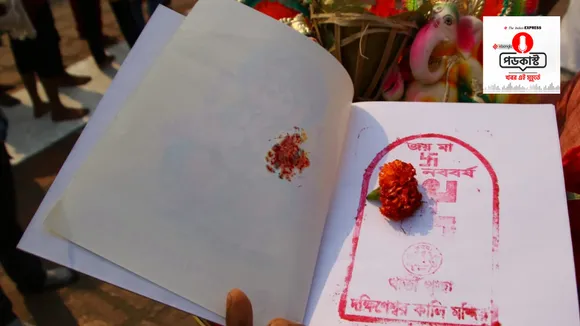 The Indian EXPRESS
পডকাস্ট
খবর এই মুহূর্তে
জয় মা
নববর্ষ
দক্ষিণেশ্বর কালি মন্দির